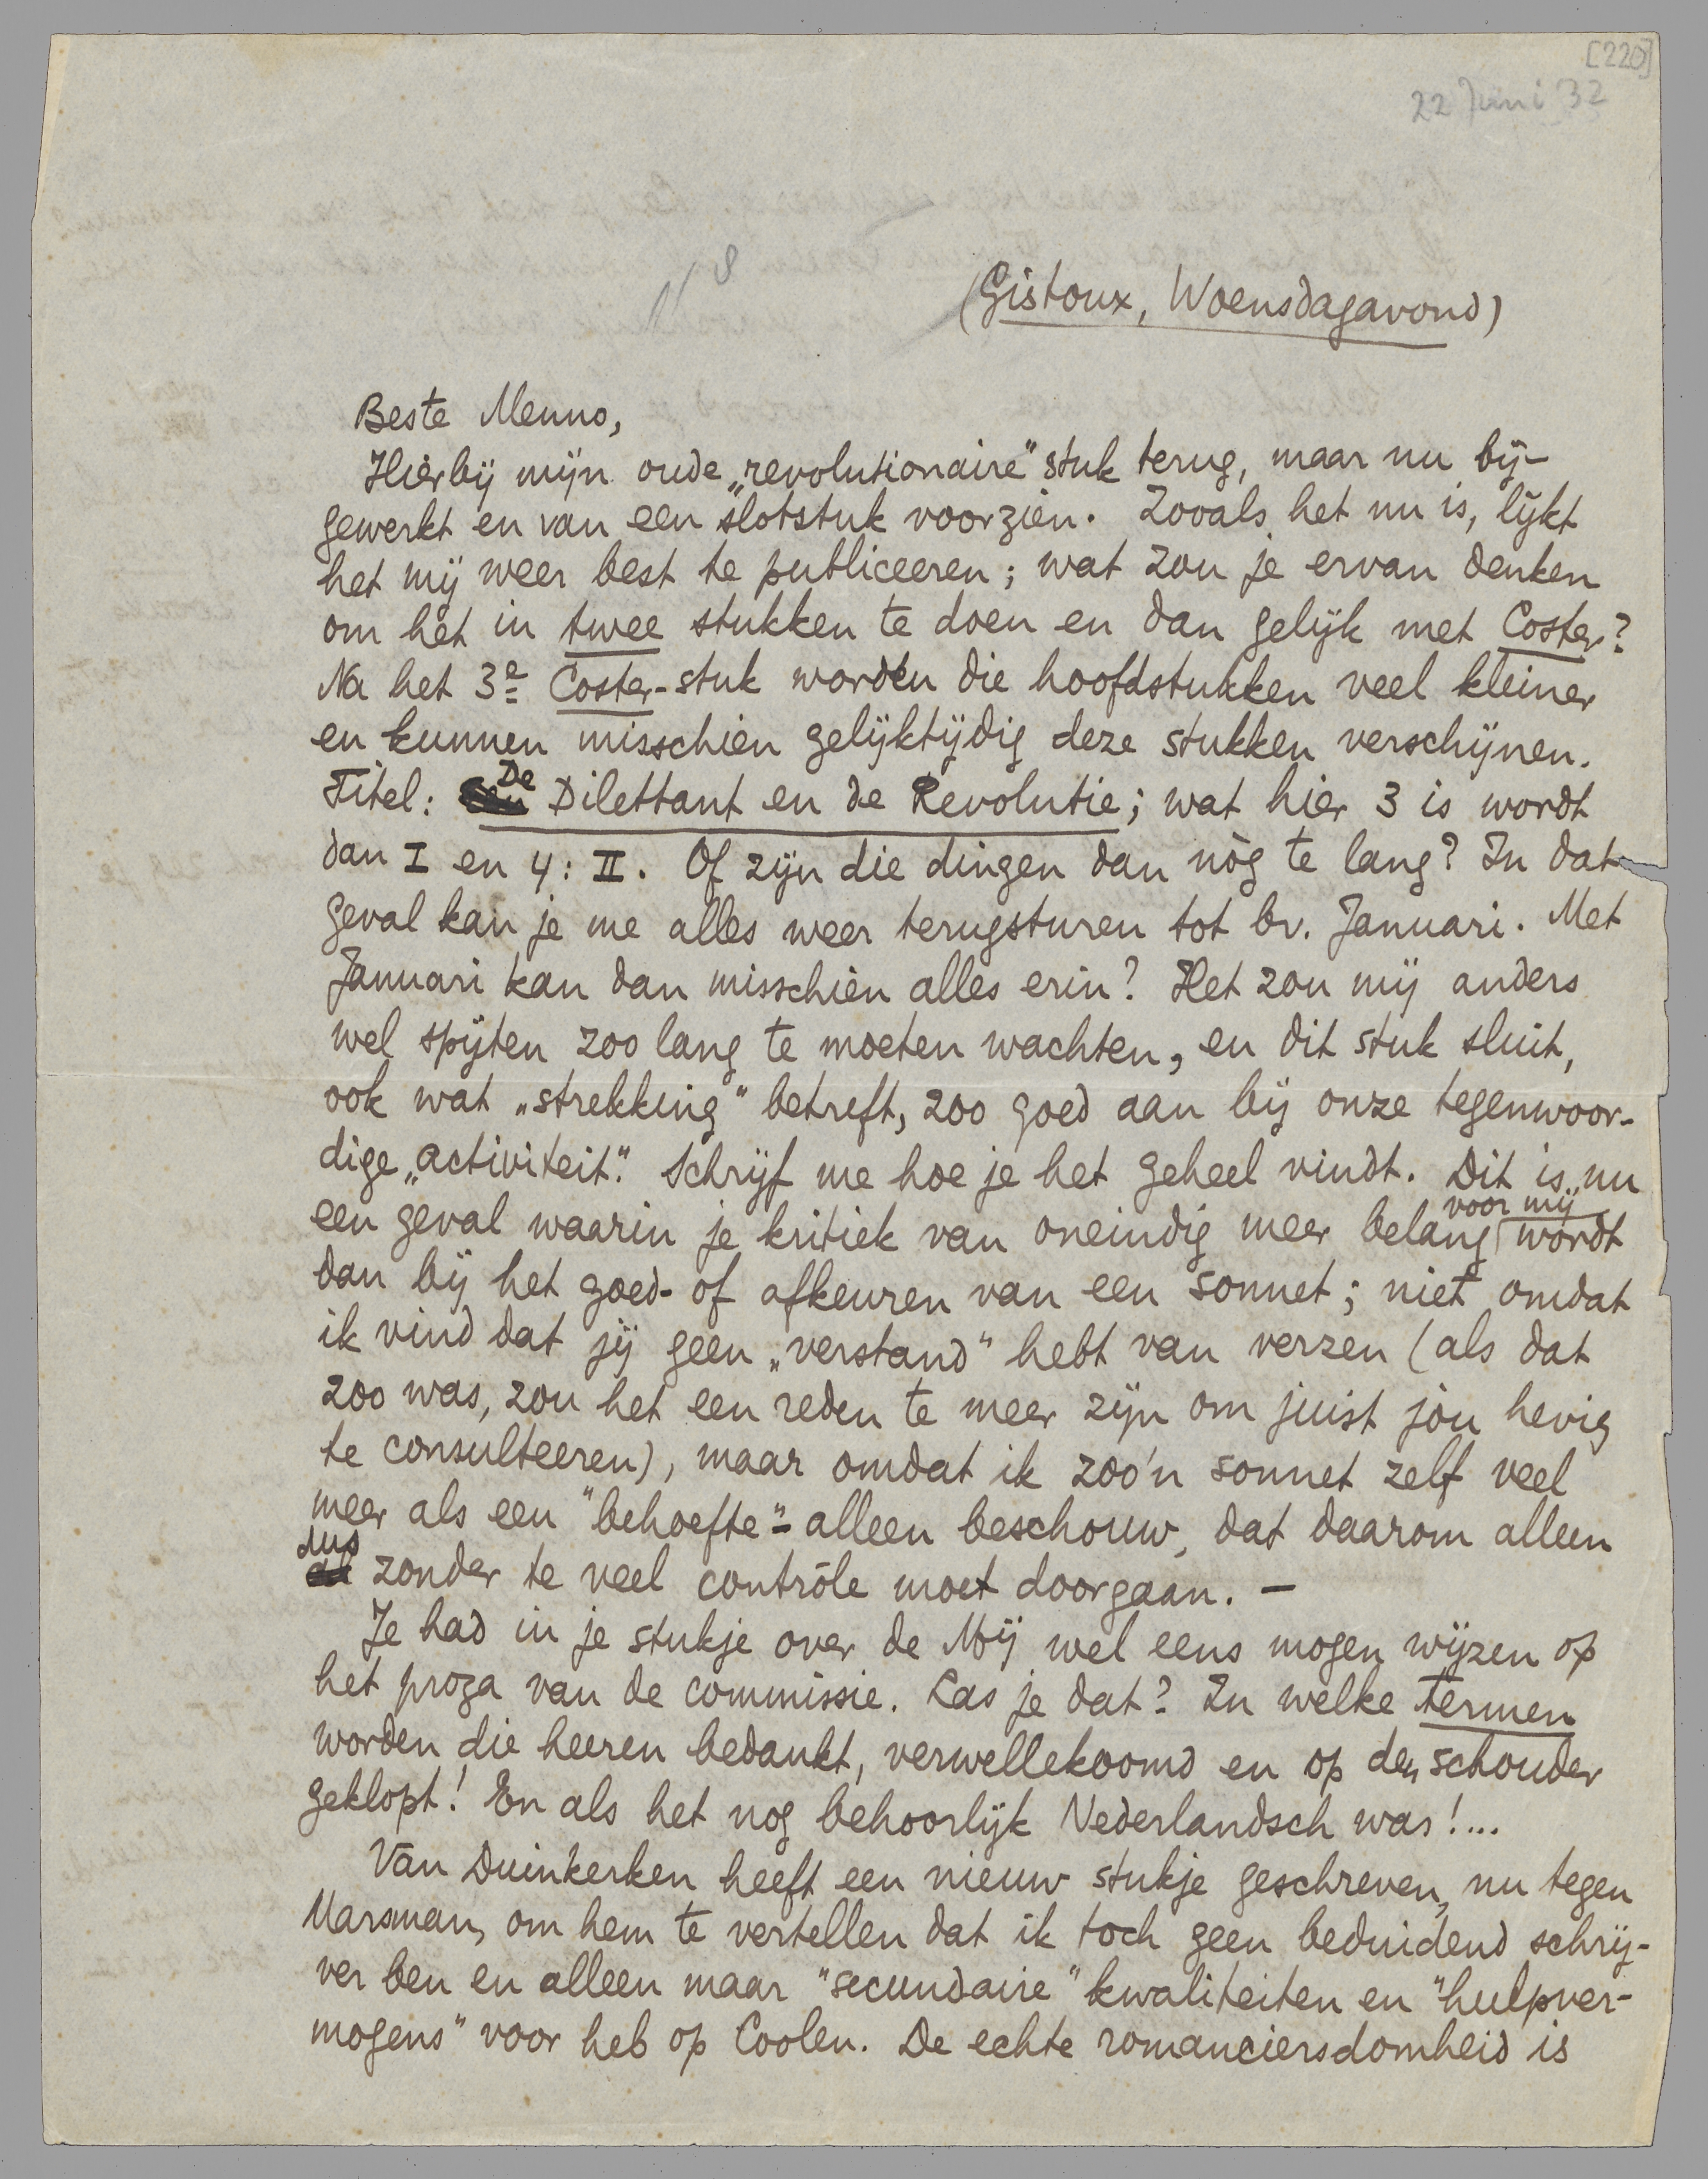 [220]
22 Juni '32
(Gistoux, Woensdagavond)
Beste Menno,
Hierbij mijn oude „revolutionaire” stuk terug, maar nu bij-
gewerkt en van een slotstuk voorzien. Zooals het nu is, lijkt
het mij weer best te publiceeren; wat zou je ervan denken
om het in twee stukken te doen en dan gelijk met Coster?
Na het 3e Coster-stuk worden die hoofdstukken veel kleiner
en kunnen misschien gelijktijdig deze stukken verschijnen.
Titel: De Dilettant en de Revolutie; wat hier 3 is wordt
dan I en 4: II. Of zijn die dingen dan nòg te lang? In dat
geval kan je me alles weer terugsturen tot bv. Januari. Met
Januari kan dan misschien alles erin? Het zou mij anders
wel spijten zoo lang te moeten wachten, en dit stuk sluit,
ook wat „strekking” betreft, zoo goed aan bij onze tegenwoor-
dige „activiteit”. Schrijf me hoe je het geheel vindt. Dit is nu
een geval waarin je kritiek van oneindig meer belang voor mij wordt
dan bij het goed- of afkeuren van een sonnet; niet omdat
ik vind dat jij geen „verstand” hebt van verzen (als dat
zoo was, zou het een reden te meer zijn om juist jòu hevig
te consulteeren), maar omdat ik zoo'n sonnet zelf veel
meer als een "behoefte"-alleen beschouw, dat daarom alleen
dus zonder te veel contrôle moet doorgaan. —
Je had in je stukje over de Mij wel eens mogen wijzen op
het proza van de commissie. Las je dat? In welke termen
worden die heeren bedankt, verwellekoomd en op den schouder
geklopt! En als het nog behoorlijk Nederlandsch was!...
Van Duinkerken heeft een nieuw stukje geschreven, nu tegen
Marsman, om hem te vertellen dat ik toch geen beduidend schrij-
ver ben en alleen maar "secundaire" kwaliteiten en "hulpver-
mogens" voor heb op Coolen. De echte romanciersdomheid is